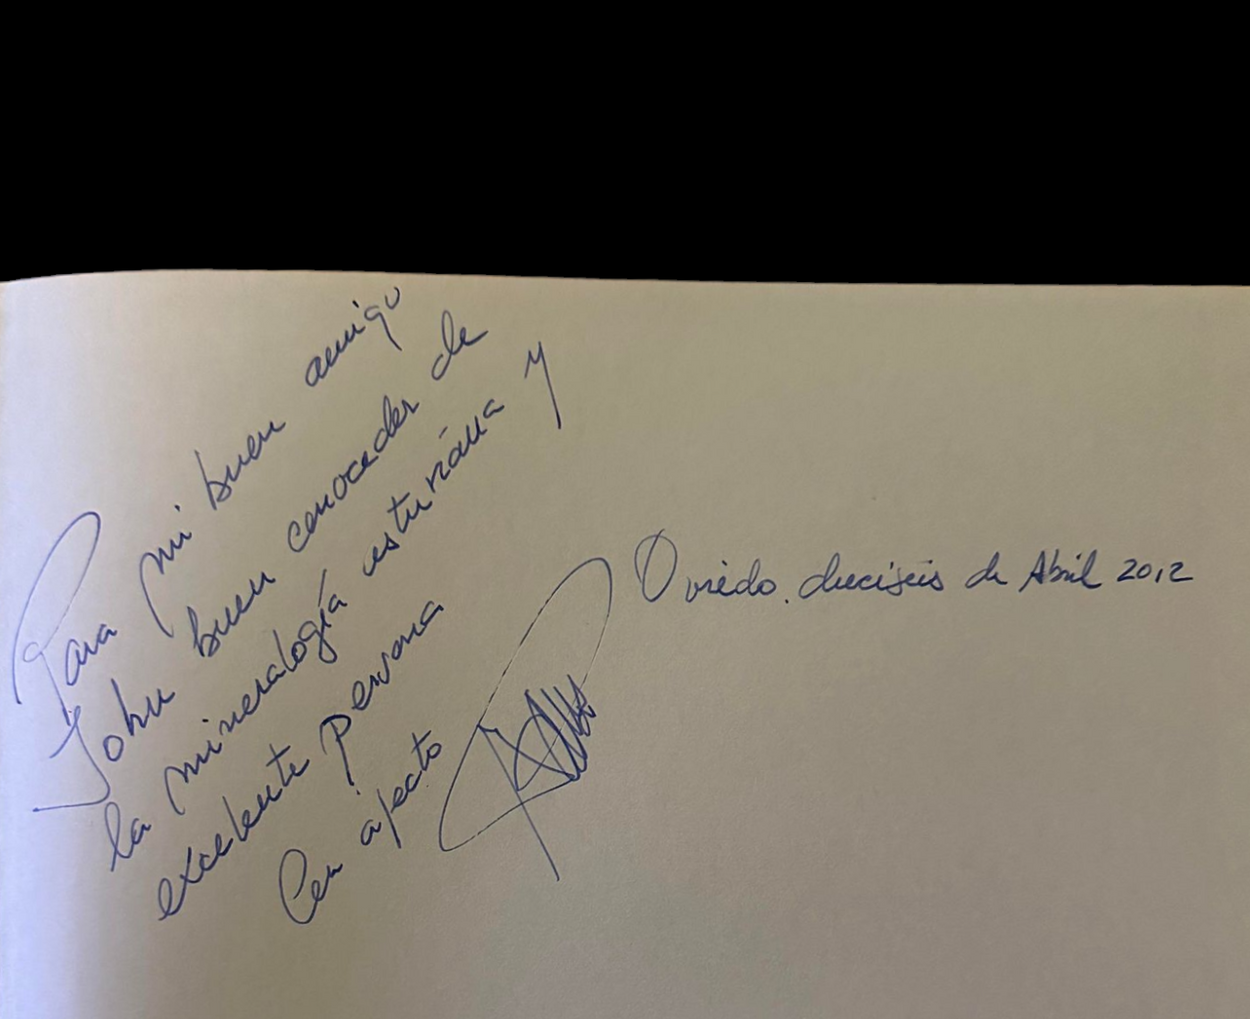 Para mi buen amigo
John buen conocedor de
la mineralogía asturiána y
excelente persona
Con afecto
Oviedo. dieciseis de Abril 2012